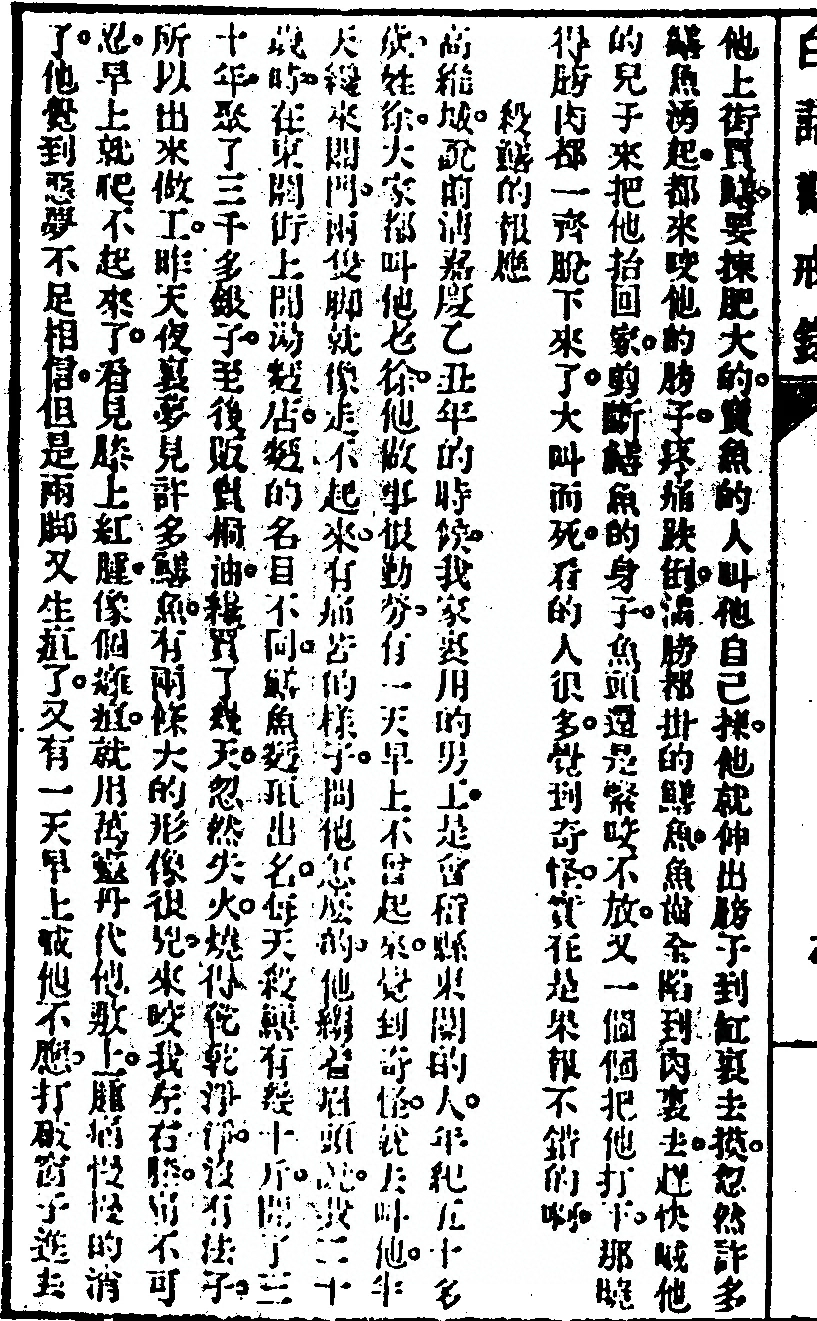 白話勸戒錄
他上街買鱔。要揀肥大的。賣魚的人叫他自己揀。他就伸出膀子到缸裏去摸。忽然許多
鱔魚湧起。都來咬他的膀子。疼痛跌倒。滿膀都掛的鱔魚。魚齒全陷到肉裏去。趕快喊他
的兒子來把他抬回家。剪斷鱔魚的身子。魚頭還是緊咬不放。又一個個把他打下。那曉
得膀肉都一齊脫下來了。大叫而死。看的人很多。覺到奇怪。實在是果報不錯的啊。
殺鱔的報應
高維城。說前清嘉慶乙丑年的時候。我家裏用的男工。是會稽縣東關的人。年紀五十多
歲。姓徐。大家都叫他老徐。他做事很勤勞。有一天早上不曾起來。覺到奇怪。就去叫他。半
天纔來開門。兩隻脚就像走不起來。有痛苦的樣子。問他怎麼的。他縐着眉頭說。我二十
歲時。在東關街上開湯麪店。麪的名目不同。鱔魚麪頂出名。每天殺鱔有幾十斤。開了三
十年。聚了三千多銀子。至後販賣桐油。纔買了幾天。忽然失火。燒得乾乾淨淨。沒有法子。
所以出來做工。昨天夜裏夢見許多鱔魚。有兩條大的形像很兇。來咬我左右膝。痛不可
忍。早上就爬不起來了。看見膝上紅腫。像個瘡疽。就用萬靈丹代他敷上。腫痛慢慢的消
了。他覺到惡夢不足相信。但是兩脚又生疽了。又有一天早上喊他不應。打破窗子進去